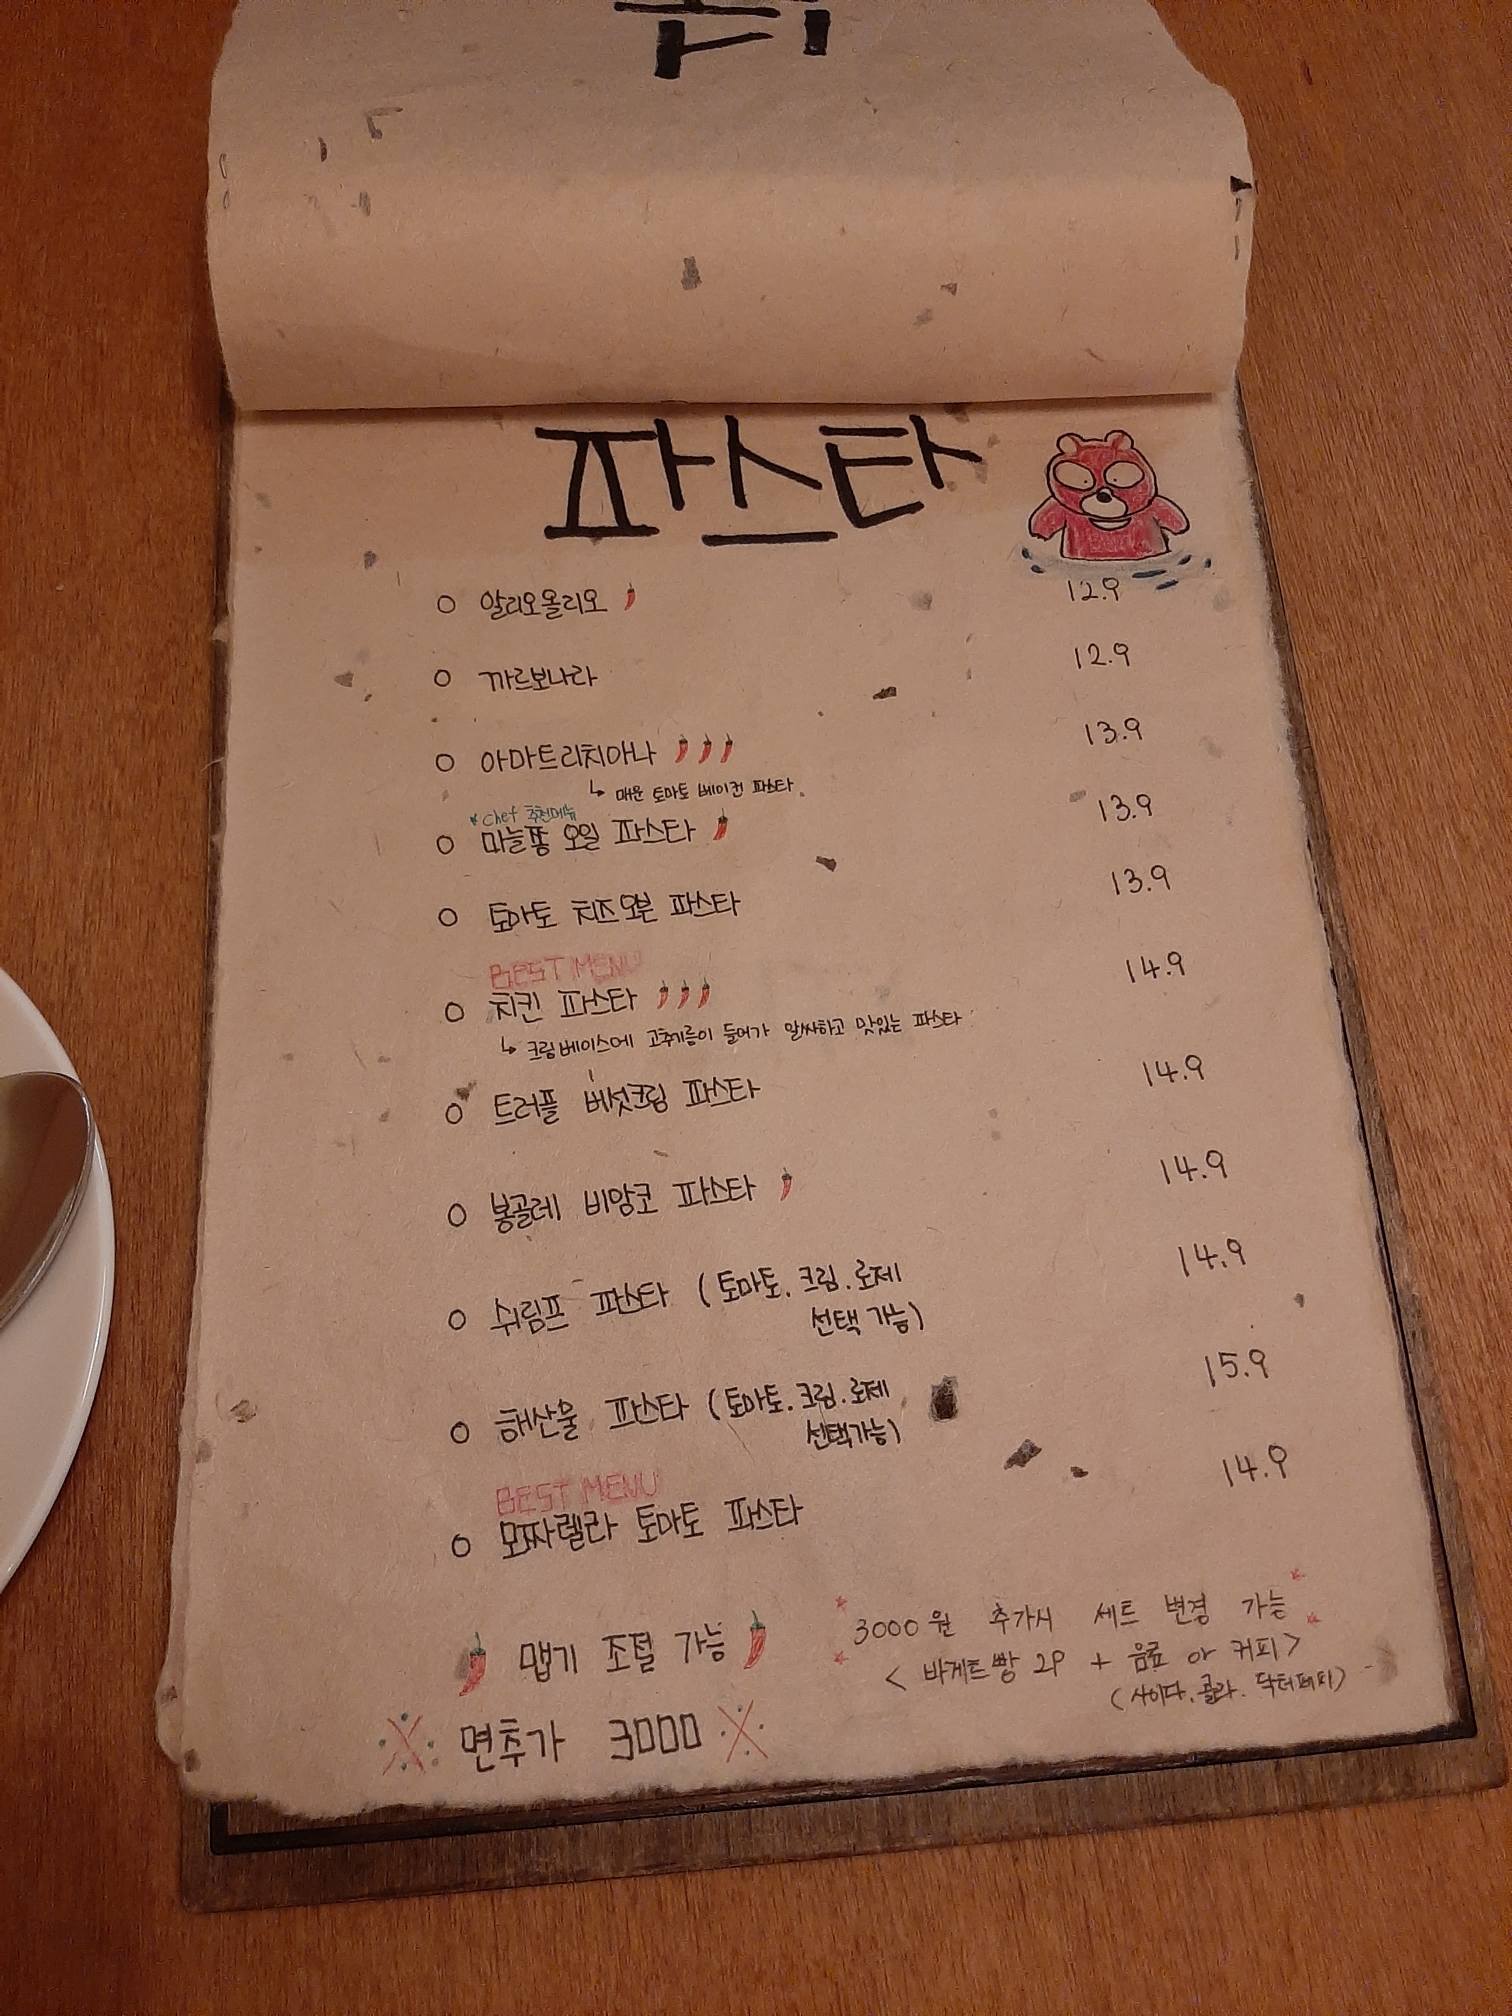 파스타
알리오올리오 12.9
까르보나라 12.9
아마트리치아나 13.9
↳ 매운 토마토 베이컨 파스타
* Chef 추천메뉴
마늘쫑 오일 파스타 13.9
토마토 치즈오븐 파스타 13.9
BEST MENU
치킨 파스타 14.9
↳ 크림베이스에 고추기름이 들어가 알싸하고 맛있는 파스타
트러플 버섯크림 파스타 14.9
봉골레 비앙코 파스타 14.9
쉬림프 파스타 (토마토.크림.로제 14.9
선택 가능)
해산물 파스타 (토마토.크림.로제 15.9
선택가능)
BEST MENU
모짜렐라 토마토 파스타 14.9
맵기 조절 가능
3000원 추가시 세트 변경 가능
< 바게트빵 2P + 음료 or 커피>
(사이다.콜라.닥터페퍼)
※ 면추가 3000 ※